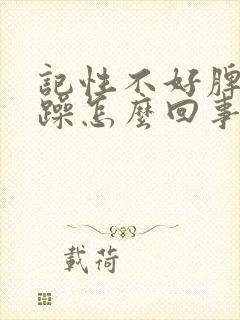 記性不好脾
躁怎麼回事
載荷